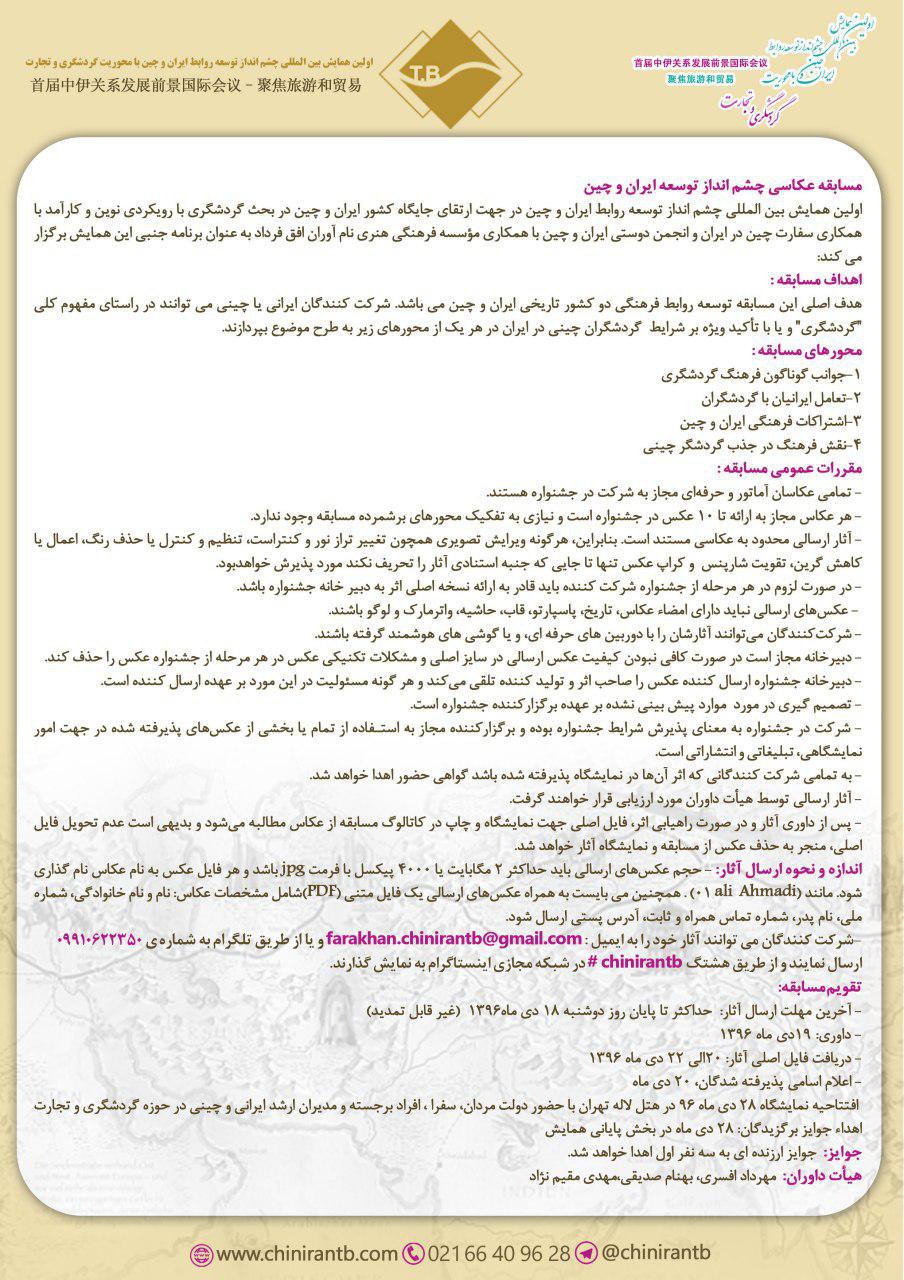 اولین همایش بین المللی چشم انداز توسعه روابط ایران و چین با محوریت گردشگری و تجارت
首届中伊关系发展前景国际会议 - 聚焦旅游和贸易
T.B
اولین همایش
بین المللی چشم انداز توسعه روابط
ایران و چین با محوریت
گردشگری و تجارت
首届中伊关系发展前景国际会议
聚焦旅游和贸易
مسابقه عکاسی چشم انداز توسعه ایران و چین
اولین همایش بین المللی چشم انداز توسعه روابط ایران و چین در جهت ارتقای جایگاه کشور ایران و چین در بحث گردشگری با رویکردی نوین و کارآمد با
همکاری سفارت چین در ایران و انجمن دوستی ایران و چین با همکاری مؤسسه فرهنگی هنری نام آوران افق فرداد به عنوان برنامه جنبی این همایش برگزار
می کند:
اهداف مسابقه :
هدف اصلی این مسابقه توسعه روابط فرهنگی دو کشور تاریخی ایران و چین می باشد. شرکت کنندگان ایرانی یا چینی می توانند در راستای مفهوم کلی
"گردشگری" و یا با تأکید ویژه بر شرایط گردشگران چینی در ایران در هر یک از محورهای زیر به طرح موضوع بپردازند.
محورهای مسابقه :
۱-جوانب گوناگون فرهنگ گردشگری
۲-تعامل ایرانیان با گردشگران
۳-اشتراکات فرهنگی ایران و چین
۴-نقش فرهنگ در جذب گردشگر چینی
مقررات عمومی مسابقه :
- تمامی عکاسان آماتور و حرفه‌ای مجاز به شرکت در جشنواره هستند.
- هر عکاس مجاز به ارائه تا ۱۰ عکس در جشنواره است و نیازی به تفکیک محورهای برشمرده مسابقه وجود ندارد.
- آثار ارسالی محدود به عکاسی مستند است. بنابراین، هرگونه ویرایش تصویری همچون تغییر تراز نور و کنتراست، تنظیم و کنترل یا حذف رنگ، اعمال یا
کاهش گرین، تقویت شارپنس و کراپ عکس تنها تا جایی که جنبه استنادی آثار را تحریف نکند مورد پذیرش خواهدبود.
- در صورت لزوم در هر مرحله از جشنواره شرکت کننده باید قادر به ارائه نسخه اصلی اثر به دبیر خانه جشنواره باشد.
- عکس‌های ارسالی نباید دارای امضاء عکاس، تاریخ، پاسپارتو، قاب، حاشیه، واترمارک و لوگو باشند.
- شرکت‌کنندگان می‌توانند آثارشان را با دوربین های حرفه ای، و یا گوشی های هوشمند گرفته باشند.
- دبیرخانه مجاز است در صورت کافی نبودن کیفیت عکس ارسالی در سایز اصلی و مشکلات تکنیکی عکس در هر مرحله از جشنواره عکس را حذف کند.
- دبیرخانه جشنواره ارسال کننده عکس را صاحب اثر و تولید کننده تلقی می‌کند و هر گونه مسئولیت در این مورد بر عهده ارسال کننده است.
- تصمیم گیری در مورد موارد پیش بینی نشده بر عهده برگزارکننده جشنواره است.
- شرکت در جشنواره به معنای پذیرش شرایط جشنواره بوده و برگزارکننده مجاز به استـفاده از تمام یا بخشی از عکس‌های پذیرفته شده در جهت امور
نمایشگاهی، تبلیغاتی و انتشاراتی است.
- به تمامی شرکت کنندگانی که اثر آن‌ها در نمایشگاه پذیرفته شده باشد گواهی حضور اهدا خواهد شد.
- آثار ارسالی توسط هیأت داوران مورد ارزیابی قرار خواهند گرفت.
- پس از داوری آثار و در صورت راهیابی اثر، فایل اصلی جهت نمایشگاه و چاپ در کاتالوگ مسابقه از عکاس مطالبه می‌شود و بدیهی است عدم تحویل فایل
اصلی، منجر به حذف عکس از مسابقه و نمایشگاه آثار خواهد شد.
اندازه و نحوه ارسال آثار: - حجم عکس‌های ارسالی باید حداکثر ۲ مگابایت یا ۴۰۰۰ پیکسل با فرمت jpg باشد و هر فایل عکس به نام عکاس نام گذاری
شود. مانند (ali Ahmadi ۰۱) . همچنین می بایست به همراه عکس‌های ارسالی یک فایل متنی (PDF)شامل مشخصات عکاس: نام و نام خانوادگی، شماره
ملی، نام پدر، شماره تماس همراه و ثابت، آدرس پستی ارسال شود.
-شرکت کنندگان می توانند آثار خود را به ایمیل : farakhan.chinirantb@gmail.com و یا از طریق تلگرام به شماره ی ۰۹۹۱۰۶۲۲۳۵۰
ارسال نمایند و از طریق هشتگ chinirantb # در شبکه مجازی اینستاگرام به نمایش گذارند.
تقویم‌مسابقه:
- آخرین مهلت ارسال آثار: حداکثر تا پایان روز دوشنبه ۱۸ دی ماه۱۳۹۶ (غیر قابل تمدید)
- داوری: ۱۹دی ماه ۱۳۹۶
- دریافت فایل اصلی آثار: ۲۰الی ۲۲ دی ماه ۱۳۹۶
- اعلام اسامی پذیرفته شدگان، ۲۰ دی ماه
افتتاحیه نمایشگاه ۲۸ دی ماه ۹۶ در هتل لاله تهران با حضور دولت مردان، سفرا ، افراد برجسته و مدیران ارشد ایرانی و چینی در حوزه گردشگری و تجارت
اهداء جوایز برگزیدگان: ۲۸ دی ماه در بخش پایانی همایش
جوایز: جوایز ارزنده ای به سه نفر اول اهدا خواهد شد.
هیأت داوران: مهرداد افسری، بهنام صدیقی،مهدی مقیم نژاد
INDIEN
www.chinirantb.com 021 66 40 96 28 @chinirantb